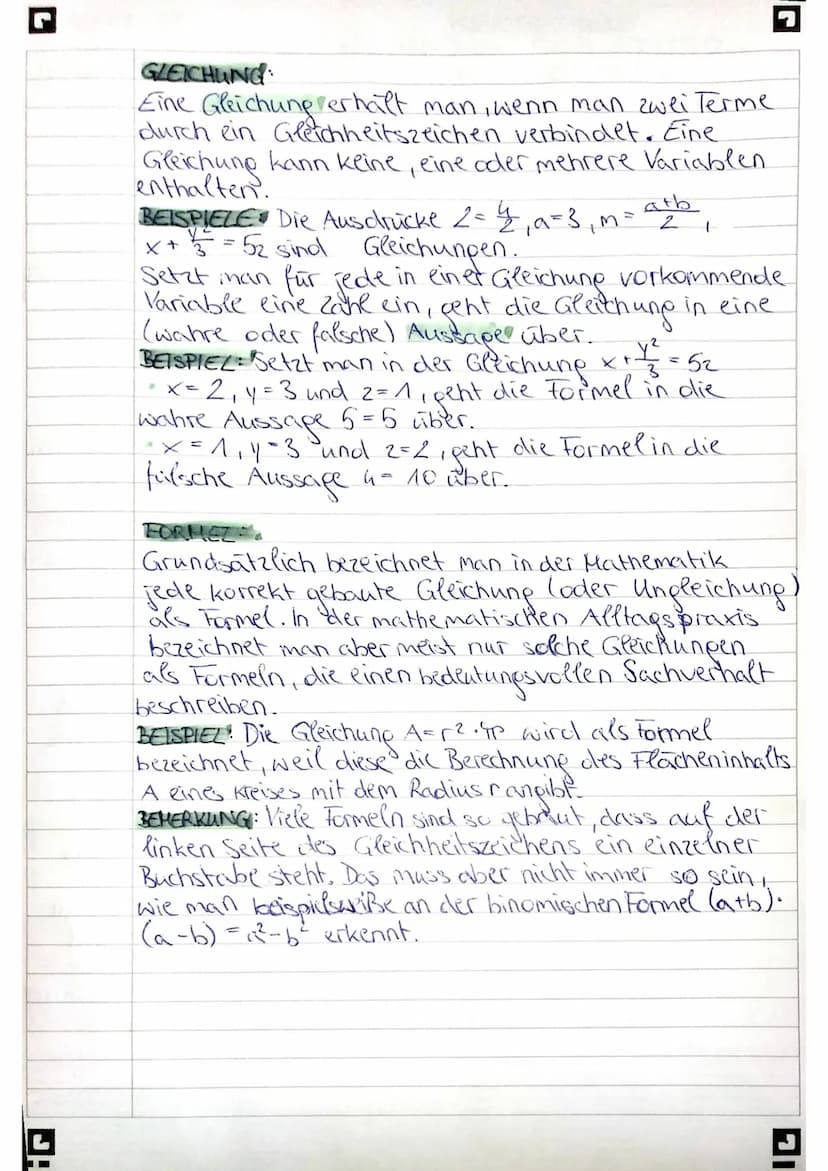 GLEICHUNG:
Eine Gleichung erhält man, wenn man zwei Terme
durch ein Gleichheitszeichen verbindet. Eine
Gleichung kann keine, eine oder mehrere Variablen
enthalten.
BEISPIELE: Die Ausdrücke 2 = 4/2, a=3, m = (a+b)/2,
x + y²/3 = 5z sind Gleichungen.
Setzt man für jede in einer Gleichung vorkommende
Variable eine Zahl ein, geht die Gleichung in eine
(wahre oder falsche) Aussage über.
BEISPIEL: Setzt man in der Gleichung x + y²/3 = 5z
• x = 2, y = 3 und z = 1, geht die Formel in die
wahre Aussage 5 = 5 über.
• x = 1, y = 3 und z = 2, geht die Formel in die
falsche Aussage 4 = 10 über.
FORMEL:
Grundsätzlich bezeichnet man in der Mathematik
jede korrekt gebaute Gleichung (oder Ungleichung)
als Formel. In der mathematischen Alltagspraxis
bezeichnet man aber meist nur solche Gleichungen
als Formeln, die einen bedeutungsvollen Sachverhalt
beschreiben.
BEISPIEL: Die Gleichung A = r² · π wird als Formel
bezeichnet, weil diese die Berechnung des Flächeninhalts
A eines Kreises mit dem Radius r angibt.
BEMERKUNG: Viele Formeln sind so gebaut, dass auf der
linken Seite des Gleichheitszeichens ein einzelner
Buchstabe steht. Das muss aber nicht immer so sein,
wie man beispielsweiße an der binomischen Formel (a+b)·
(a-b) = a²-b² erkennt.